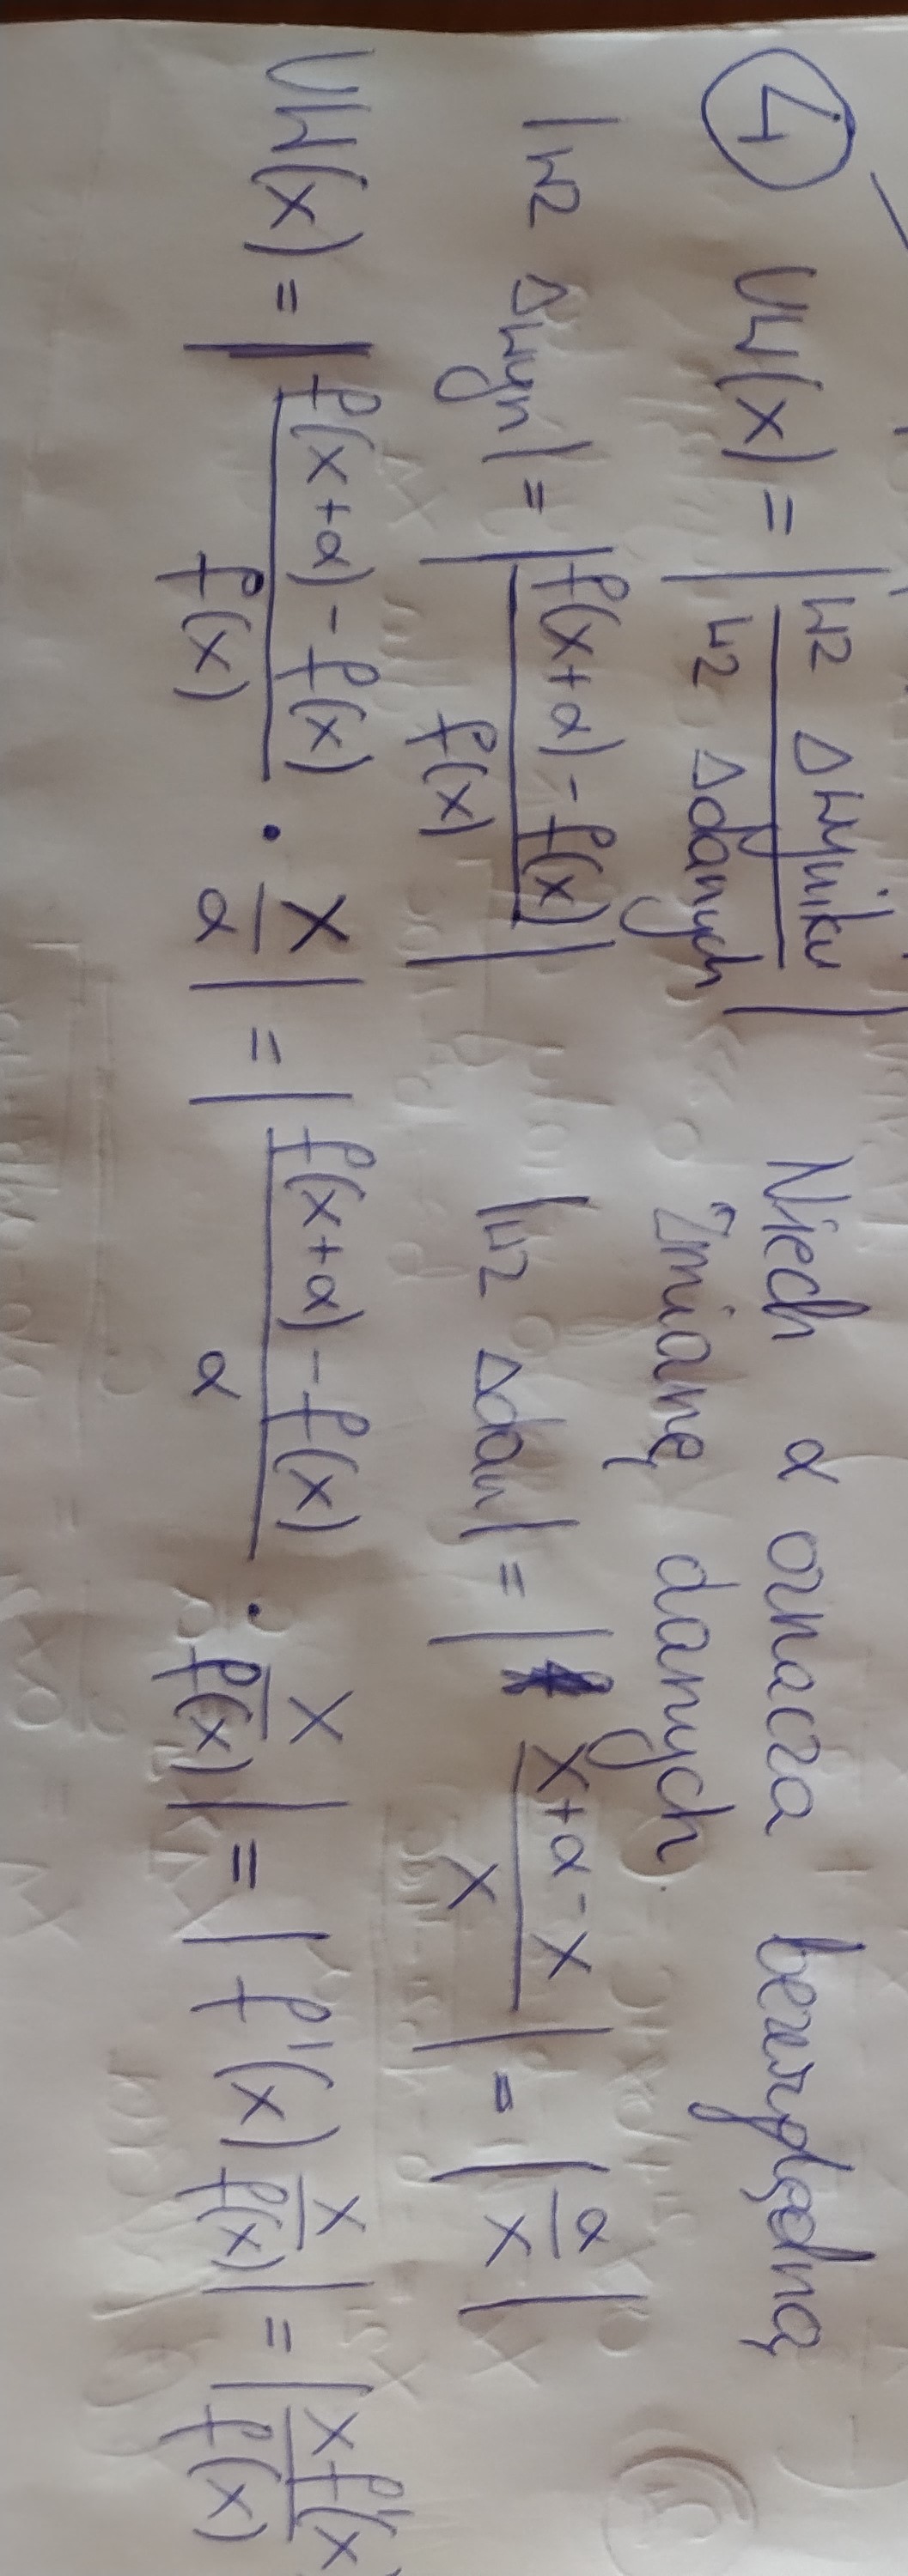 ④ UW(x) = |wz Δwyniku / wz Δdanych| Niech α oznacza bezwzględną
zmianę danych.
|wz Δwyn| = |f(x+α) - f(x) / f(x)| |wz Δdan| = |x+α-x / x| = |α / x|
UW(x) = |f(x+α) - f(x) / f(x) · x / α| = |f(x+α) - f(x) / α · x / f(x)| = |f'(x) x / f(x)| = |x f'(x) / f(x)